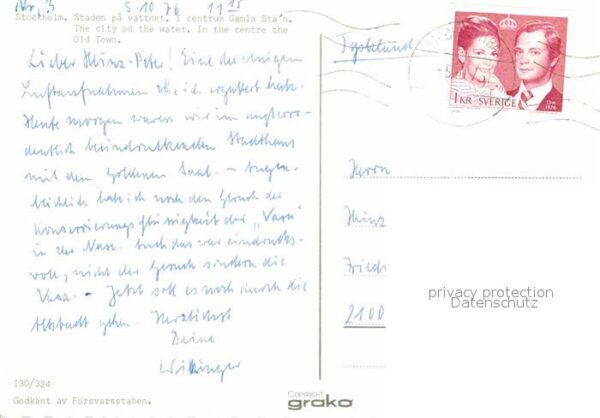 Nr. 3 5.10.76 11 15
Stockholm. Staden på vattnet. I centrum Gamla Sta'n.
The city on the water. In the centre the
Old Town.
Lieber Heinz-Peter! Eine der wenigen
Luftaufnahmen die ich ergattert habe.
Heute morgen waren wir im außeror-
dentlich beeindruckenden Stadthaus
mit dem goldenen Saal. – Augen-
blicklich habe ich noch den Geruch der
Konservierungsflüssigkeit der „Vasa"
in der Nase. Auch das war eindrucks-
voll, nicht der Geruch sondern die
Vasa. – Jetzt soll es noch durch die
Altstadt gehen. Herzlichst
Deine
130/324
Godkänt av Försvarsstaben.
COPYRIGHT
grako
Tyskland
1 KR SVERIGE
1976
Herrn
Heinz
Frieds
2100
privacy protection
Datenschutz